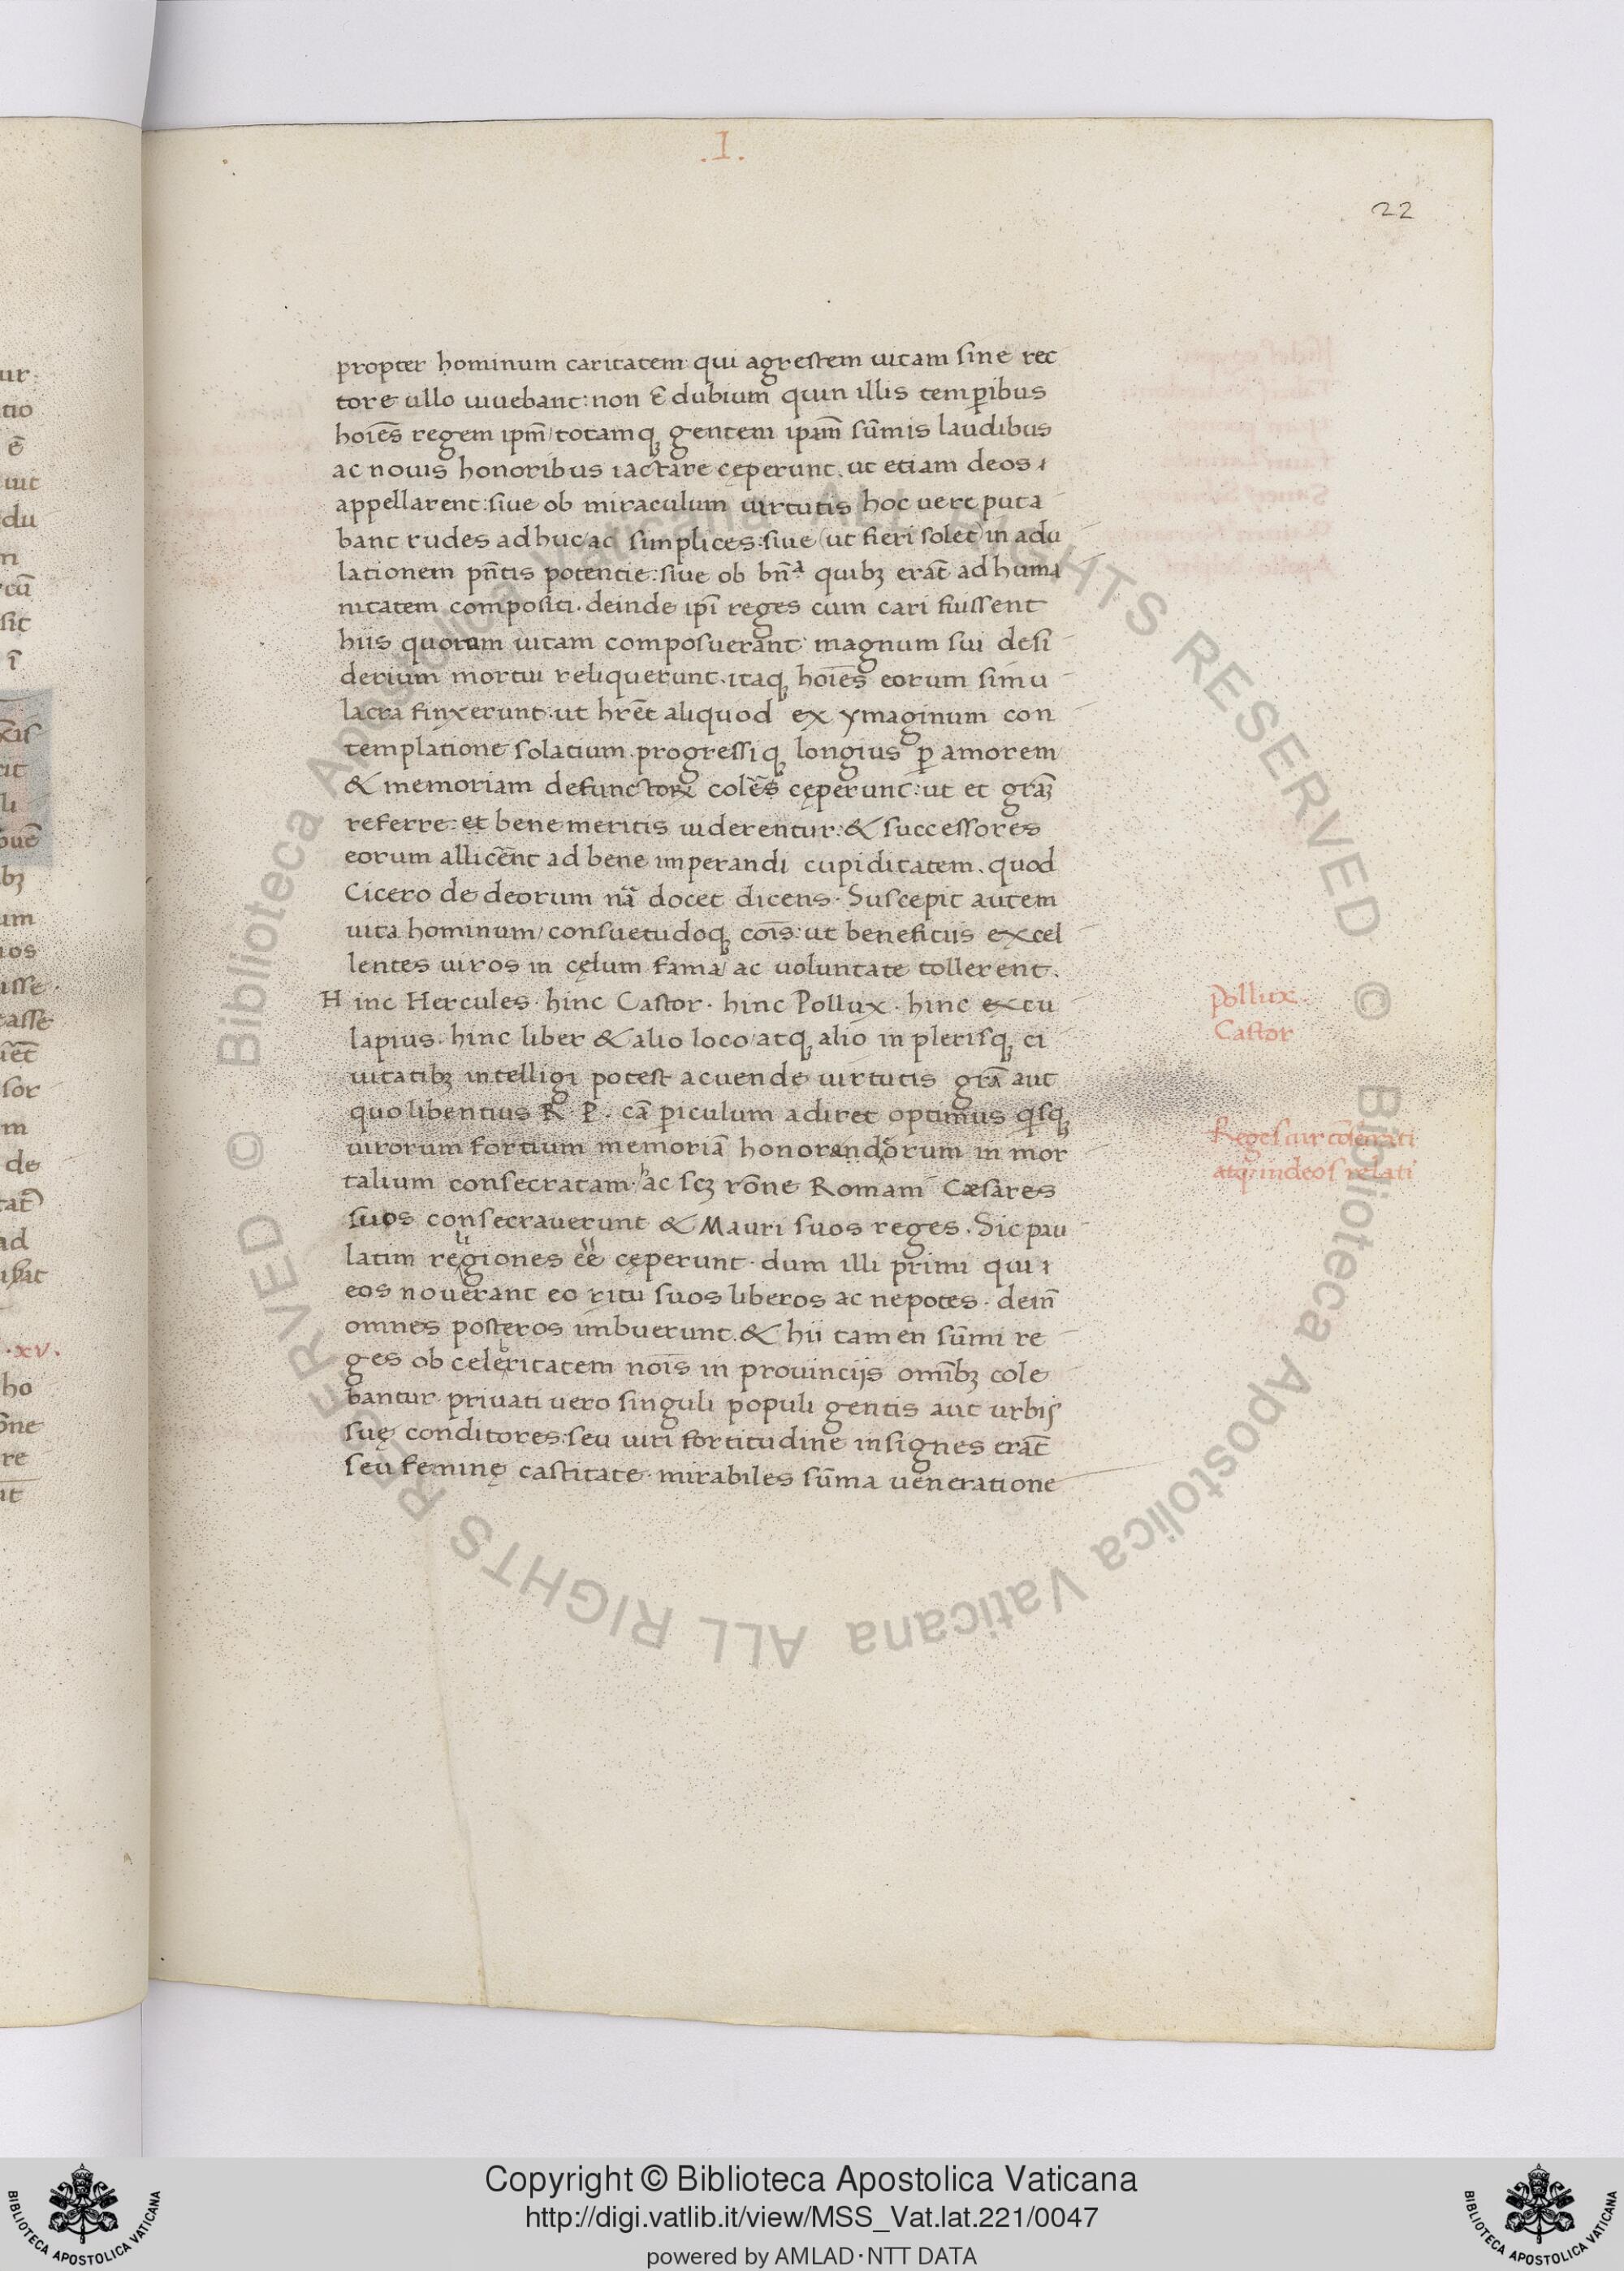 .I.
22
propter hominum caritatem qui agrestem uitam sine rec
tore ullo uiuebant: non ē dubium quin illis temꝑibus
hoīes regem ipm̄/ totamqꝫ gentem ipam̄ sūmis laudibus
ac nouis honoribus iactare cęperunt. ut etiam deos
appellarent: siue ob miraculum uirtutis hoc uere puta
bant rudes adhuc/ ac simplices: siue (ut fieri solet) in adu
lationem pn̄tis potentie: siue ob bn̄ᵃ quibꝫ erāt ad huma
nitatem compositi. deinde ipī reges cum cari fuissent
hiis quorum uitam composuerant magnum sui desi
derium mortui reliquerunt. itaqꝫ hoīes eorum simu
lacra finxerunt: ut hrēt aliquod ex ymaginum con
templatione solatium. progressiqꝫ longius ꝑ amorem
& memoriam defunctorꝝ colēs cęperunt: ut et grām
referre: et bene meritis uiderentur: & successores
eorum allicēnt ad bene imperandi cupiditatem. quod
Cicero de deorum nā docet dicens. Suscepit autem
uita hominum/ consuetudoqꝫ coīs: ut beneficiis excel
lentes uiros in cęlum fama/ ac uoluntate tollerent.
Hinc Hercules. hinc Castor. hinc Pollux. hinc excu
lapius. hinc liber & alio loco/ atqꝫ alio in plerisqꝫ ci
uitatibꝫ intelligi potest acuende uirtutis grā aut
quo libentius R. P. cā ꝑiculum adiret optimus qisqꝫ
uirorum fortium memoriā honorandorum in mor
talium consecratam. hac scꝫ rōne Romani Cæsares
suos consecrauerunt & Mauri suos reges. Sic pau
latim religiones eē cęperunt. dum illi primi qui
eos nouerant eo ritu suos liberos ac nepotes. dein̄
omnes posteros imbuerunt. & hii tamen sūmi re
ges ob celebritatem noīs in prouincijs omībꝫ cole
bantur. priuati uero singuli populi gentis aut urbis
suę conditores: seu uiri fortitudine insignes erāt
seu feminę castitate. mirabiles sūma ueneratione
Pollux.
Castor
Reges cur cōsecrati
atqꝫ in deos relati
Copyright © Biblioteca Apostolica Vaticana
http://digi.vatlib.it/view/MSS_Vat.lat.221/0047
powered by AMLAD·NTT DATA